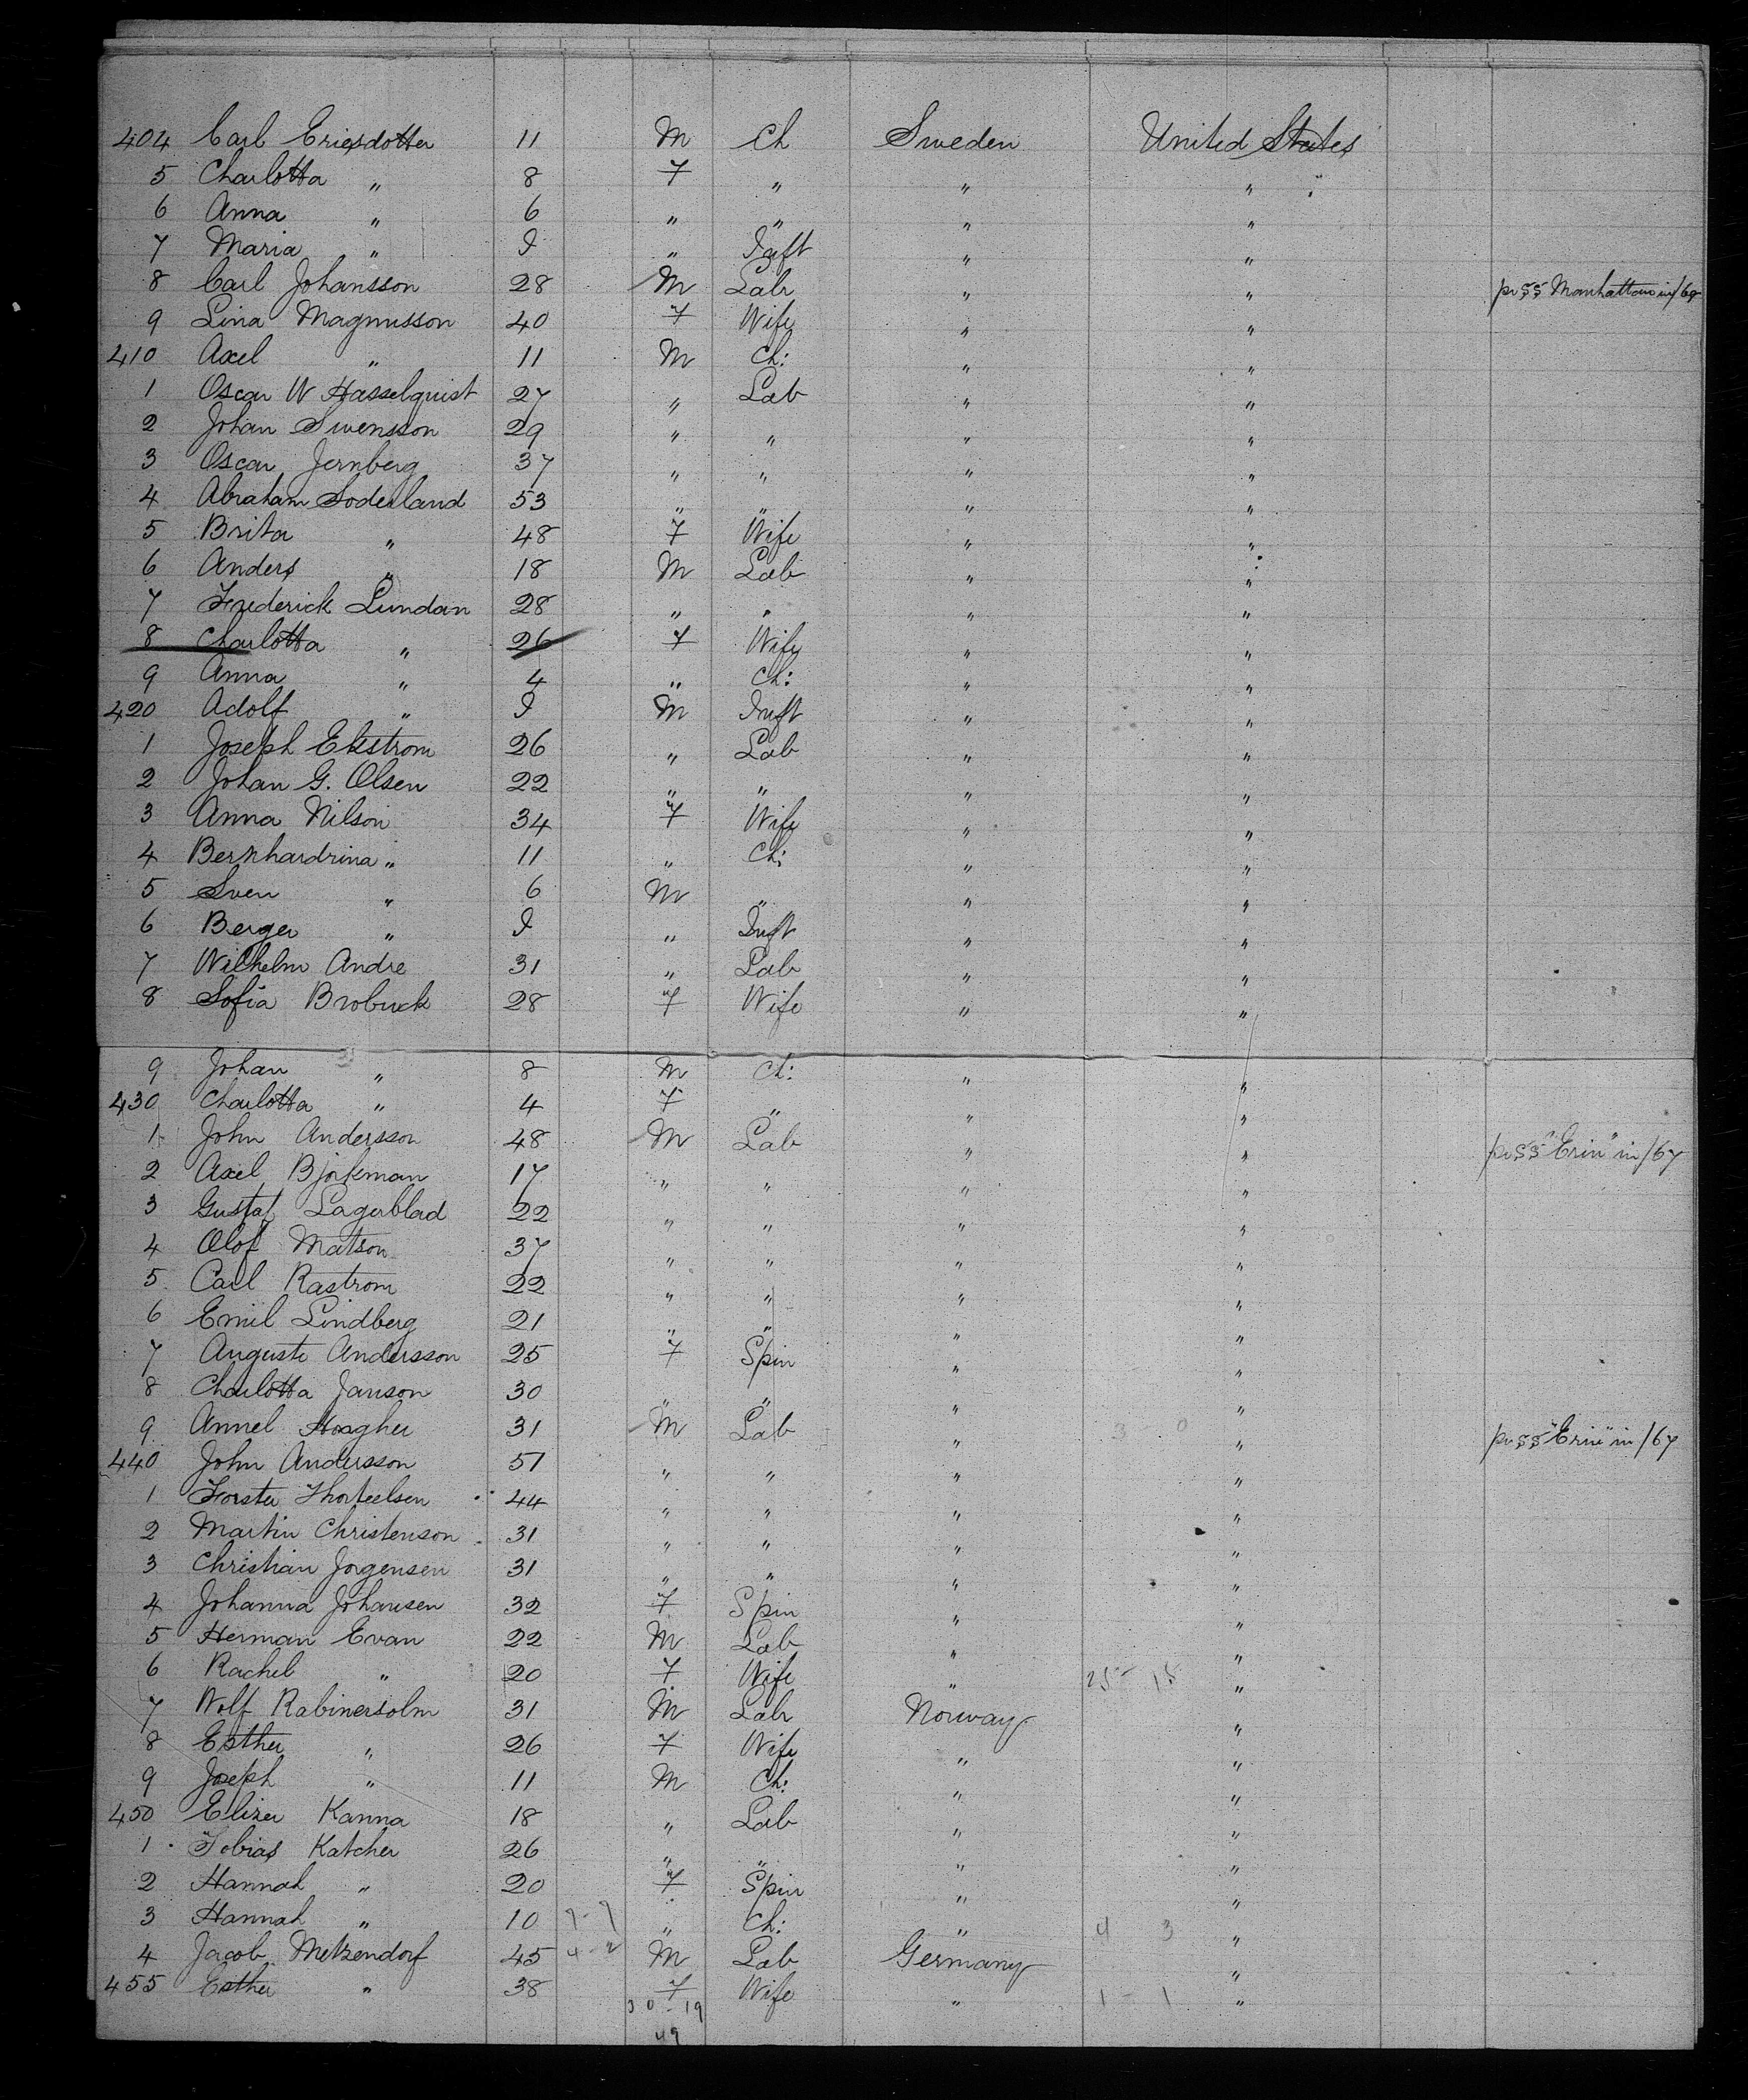 404 Carl Ericsdotter 11 M Ch Sweden United States
5 Charlotta " 8 F " " "
6 Anna " 6 " " " "
7 Maria " I " Inft " "
8 Carl Johansson 28 M Labr " " pr SS Manhattan in/69
9 Lina Magnusson 40 F Wife " "
410 Axel " 11 M Ch: " "
1 Oscar W Hasselquist 27 " Lab " "
2 Johan Swensson 29 " " " "
3 Oscar Jernberg 37 " " " "
4 Abraham Soderland 53 " " " "
5 Brita " 48 F Wife " "
6 Anders " 18 M Lab " "
7 Frederick Lundan 28 " " " "
8 Charlotta " 26 F Wife " "
9 Anna " 4 " Ch: " "
420 Adolf " I M Inft " "
1 Joseph Ekstrom 26 " Lab " "
2 Johan G. Olsen 22 " " " "
3 Anna Nilson 34 F Wife " "
4 Bernhardrina " 11 " Ch: " "
5 Sven " 6 M " " "
6 Berger " I " Inft " "
7 Wilhelm Andre 31 " Lab " "
8 Sofia Brobuck 28 F Wife " "
9 Johan " 8 M Ch: " "
430 Charlotta " 4 F " " "
1 John Andersson 48 M Lab " " pr SS "Erin" in/67
2 Axel Bjorkman 17 " " " "
3 Gustaf Lagerblad 22 " " " "
4 Olof Matson 37 " " " "
5 Carl Rastrom 22 " " " "
6 Emil Lindberg 21 " " " "
7 Auguste Andersson 25 F Spin " "
8 Charlotta Janson 30 " " " "
9 Annel Hoagher 31 M Lab " 3 - 0 " pr SS "Erin" in/67
440 John Andersson 51 " " " "
1 Forster Thorteelsen 44 " " " "
2 Martin Christenson 31 " " " "
3 Christian Jorgensen 31 " " " "
4 Johanna Johansen 32 F Spin " "
5 Herman Evan 22 M Lab " "
6 Rachel " 20 F Wife " 25 - 15 "
7 Wolf Rabinersolm 31 M Labr Norway "
8 Esther " 26 F Wife " "
9 Joseph " 11 M Ch: " "
450 Elizer Kanna 18 " Lab " "
1 Tobias Katcher 26 " " " "
2 Hannah " 20 F Spin " "
3 Hannah " 10 9-9 " Ch: " 4 3 "
4 Jacob Metzendorf 45 4-2 M Lab Germany "
455 Esther " 38 F Wife " 1 - 1 "
30 - 19
49